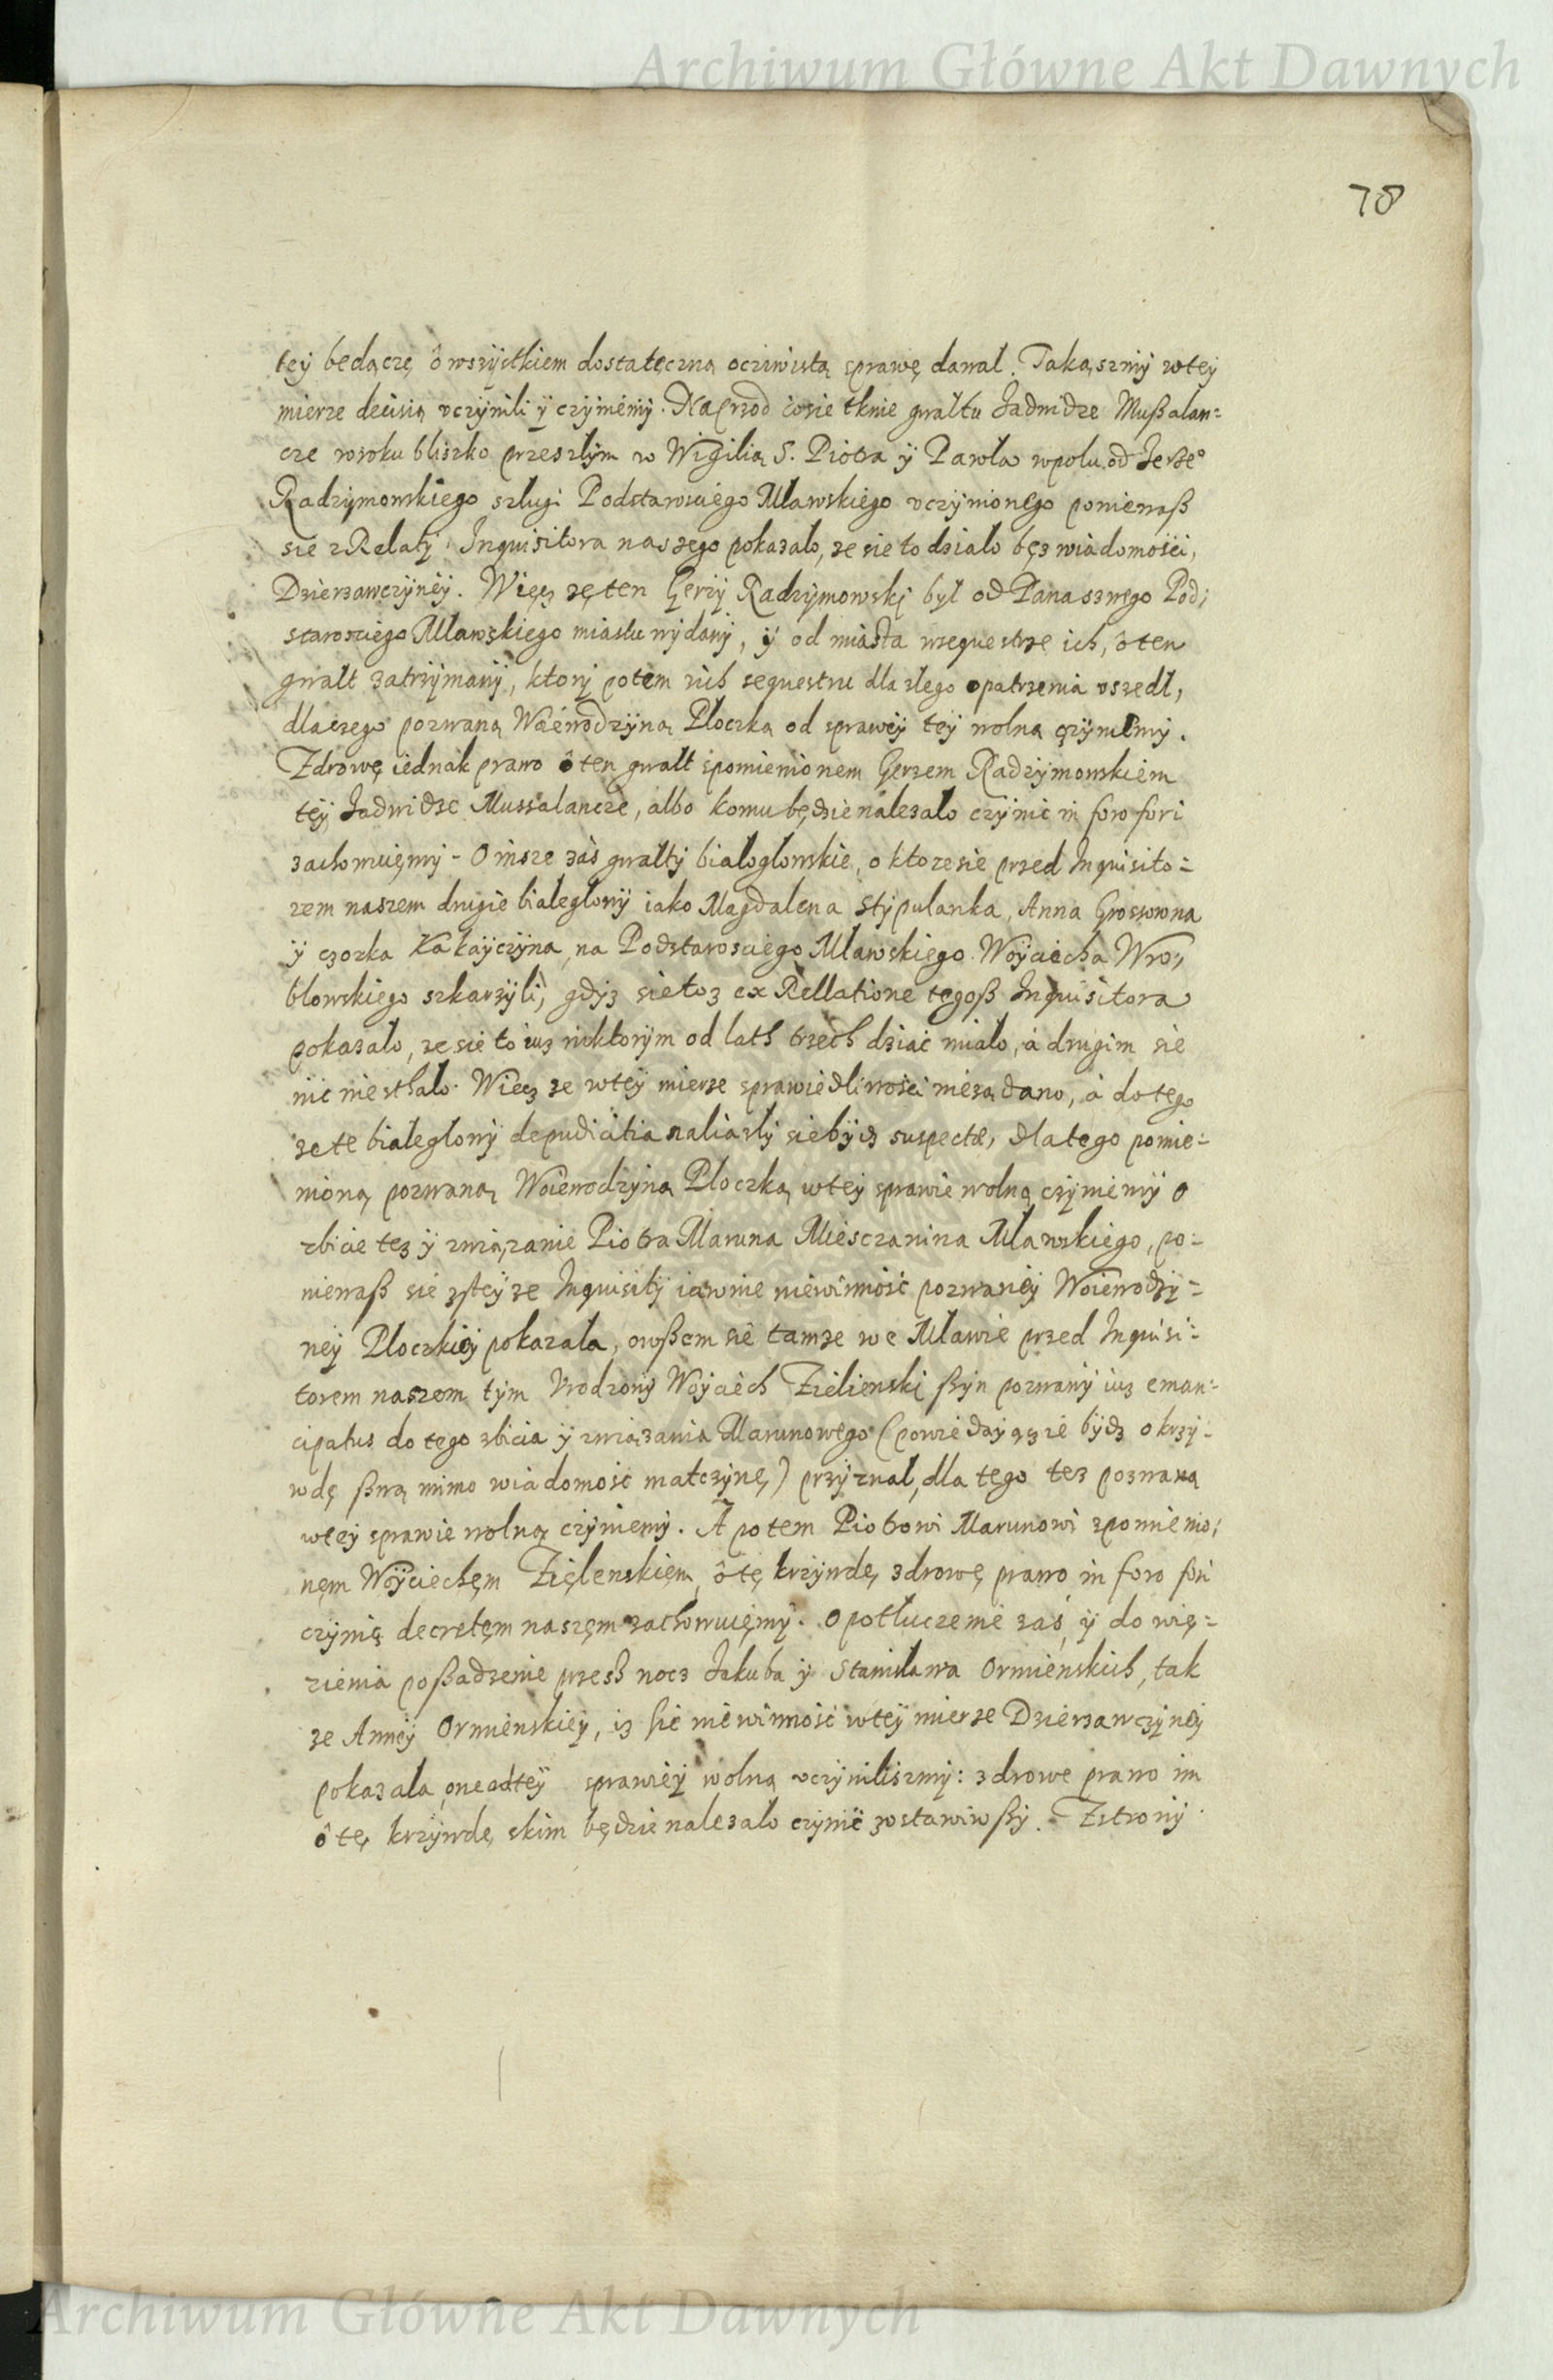 Archiwum Główne Akt Dawnych
78
teÿ bedączę ô wszÿstkiem dostateczną oczẃistą sprawę dawal. Taką szmÿ wteÿ
mierze decisią vczÿnili ÿ czÿniemÿ. Naprzod cosie tknie gwaltu Jadwidze Mußalan=
cze wroku bliszko przeszlÿm w Wigilią S. Piotra ÿ Pawla wpolu od Jerzeo
Radzÿmowskiego szlugi Podstarosciego Mlawskiego vczÿnionego poniewaß
sie z Relatÿ Inquisitora naszego pokazalo, ze sie to dzialo bęz wiadomości,
Dzierzawczÿneÿ. Więcz zę ten Gerzÿ Radzÿmowskj bÿl od Pana szwego Pod;
starosciego Mlawskiego miastu wÿdanÿ, ÿ od miasta wsequestrze ich, ô ten
gwalt zatrzÿmanÿ, ktorÿ potem zich sequestru dla zlego opatrzenia vszedl,
dlaczego pozwaną Woiewodzÿną Ploczką od sprawÿ teÿ wolną czÿniemÿ.
Zdrowę iednak prawo ô ten gwalt spomienionem Gerzem Radzÿmowskiem
teÿ Jadwidze Mussalancze, albo komu będzie nalezalo czÿnic in foro fori
zachowuięmÿ - O insze zaś gwaltÿ bialoglowskie, o ktore sie przed Inquisito=
rem naszem drugie bialeglowÿ iako Magdalena Stÿpulanka, Anna Grossowna
ÿ czorka Kakaÿczÿna, na Podstarosciego Mlawskiego Woÿciecha Wro;
blowskiego szkarzÿli, gdÿz sie toz ex Rellatione tegoß Inquisitora
pokazalo, ze sie to iuz niktorÿm od lath trzech dziać mialo, á drugim sie
nic niesthalo. Więcz ze wteÿ mierze sprawiedliwości nieządano, á do tego
ze te bialeglowÿ de pudicitia naliazlÿ sie bÿdz suspectæ, dlatego pomie=
nioną pozwaną Woiewodzÿną Ploczką wteÿ sprawie wolną czÿniemÿ O
zbicie tez ÿ związanie Piotra Maruna Miesczanina Mlawskiego, po=
niewaß sie zsteÿze Inquisitÿ iawnie niewinność pozwaneÿ Woiewodzÿ=
neÿ Ploczkieÿ pokazala, owßem sie tamze we Mlawie przed Inquisi=
torem naszem tÿm Vrodzonÿ Woÿciech Zielienskj ßÿn pozwanÿ iuz eman=
cipatus do tego zbicia ÿ związania Marunowego (powiedaÿączże bÿdz o krzÿ=
wdę ßwą mimo wiadomość matczÿnę) przÿznal, dla tego tez pozwaną
wteÿ sprawie wolną czÿniemÿ. A potem Piotrowi Marunowi spomienio;
nęm Woÿciechęm Zięlenskięm, ô tę krzÿwdę, zdrowę prawo in foro fori
czÿnię decretęm naszęm zachowuięmÿ. O potluczenie zaś, ÿ do wię=
zienia poßadzenie przesh nocz Jakuba ÿ Stanislawa Ormienskich, tak
ze Anneÿ Ormienskieÿ, iz sie niewinność wteÿ mierze Dzierzawczÿneÿ
pokazala, one odteÿ sprawieÿ wolną vczÿniliszmÿ: zdrowe prawo im
ô tę krzÿwdę, skim będzie nalezalo czÿnić zostawiwßÿ. Zstronÿ
Archiwum Główne Akt Dawnych